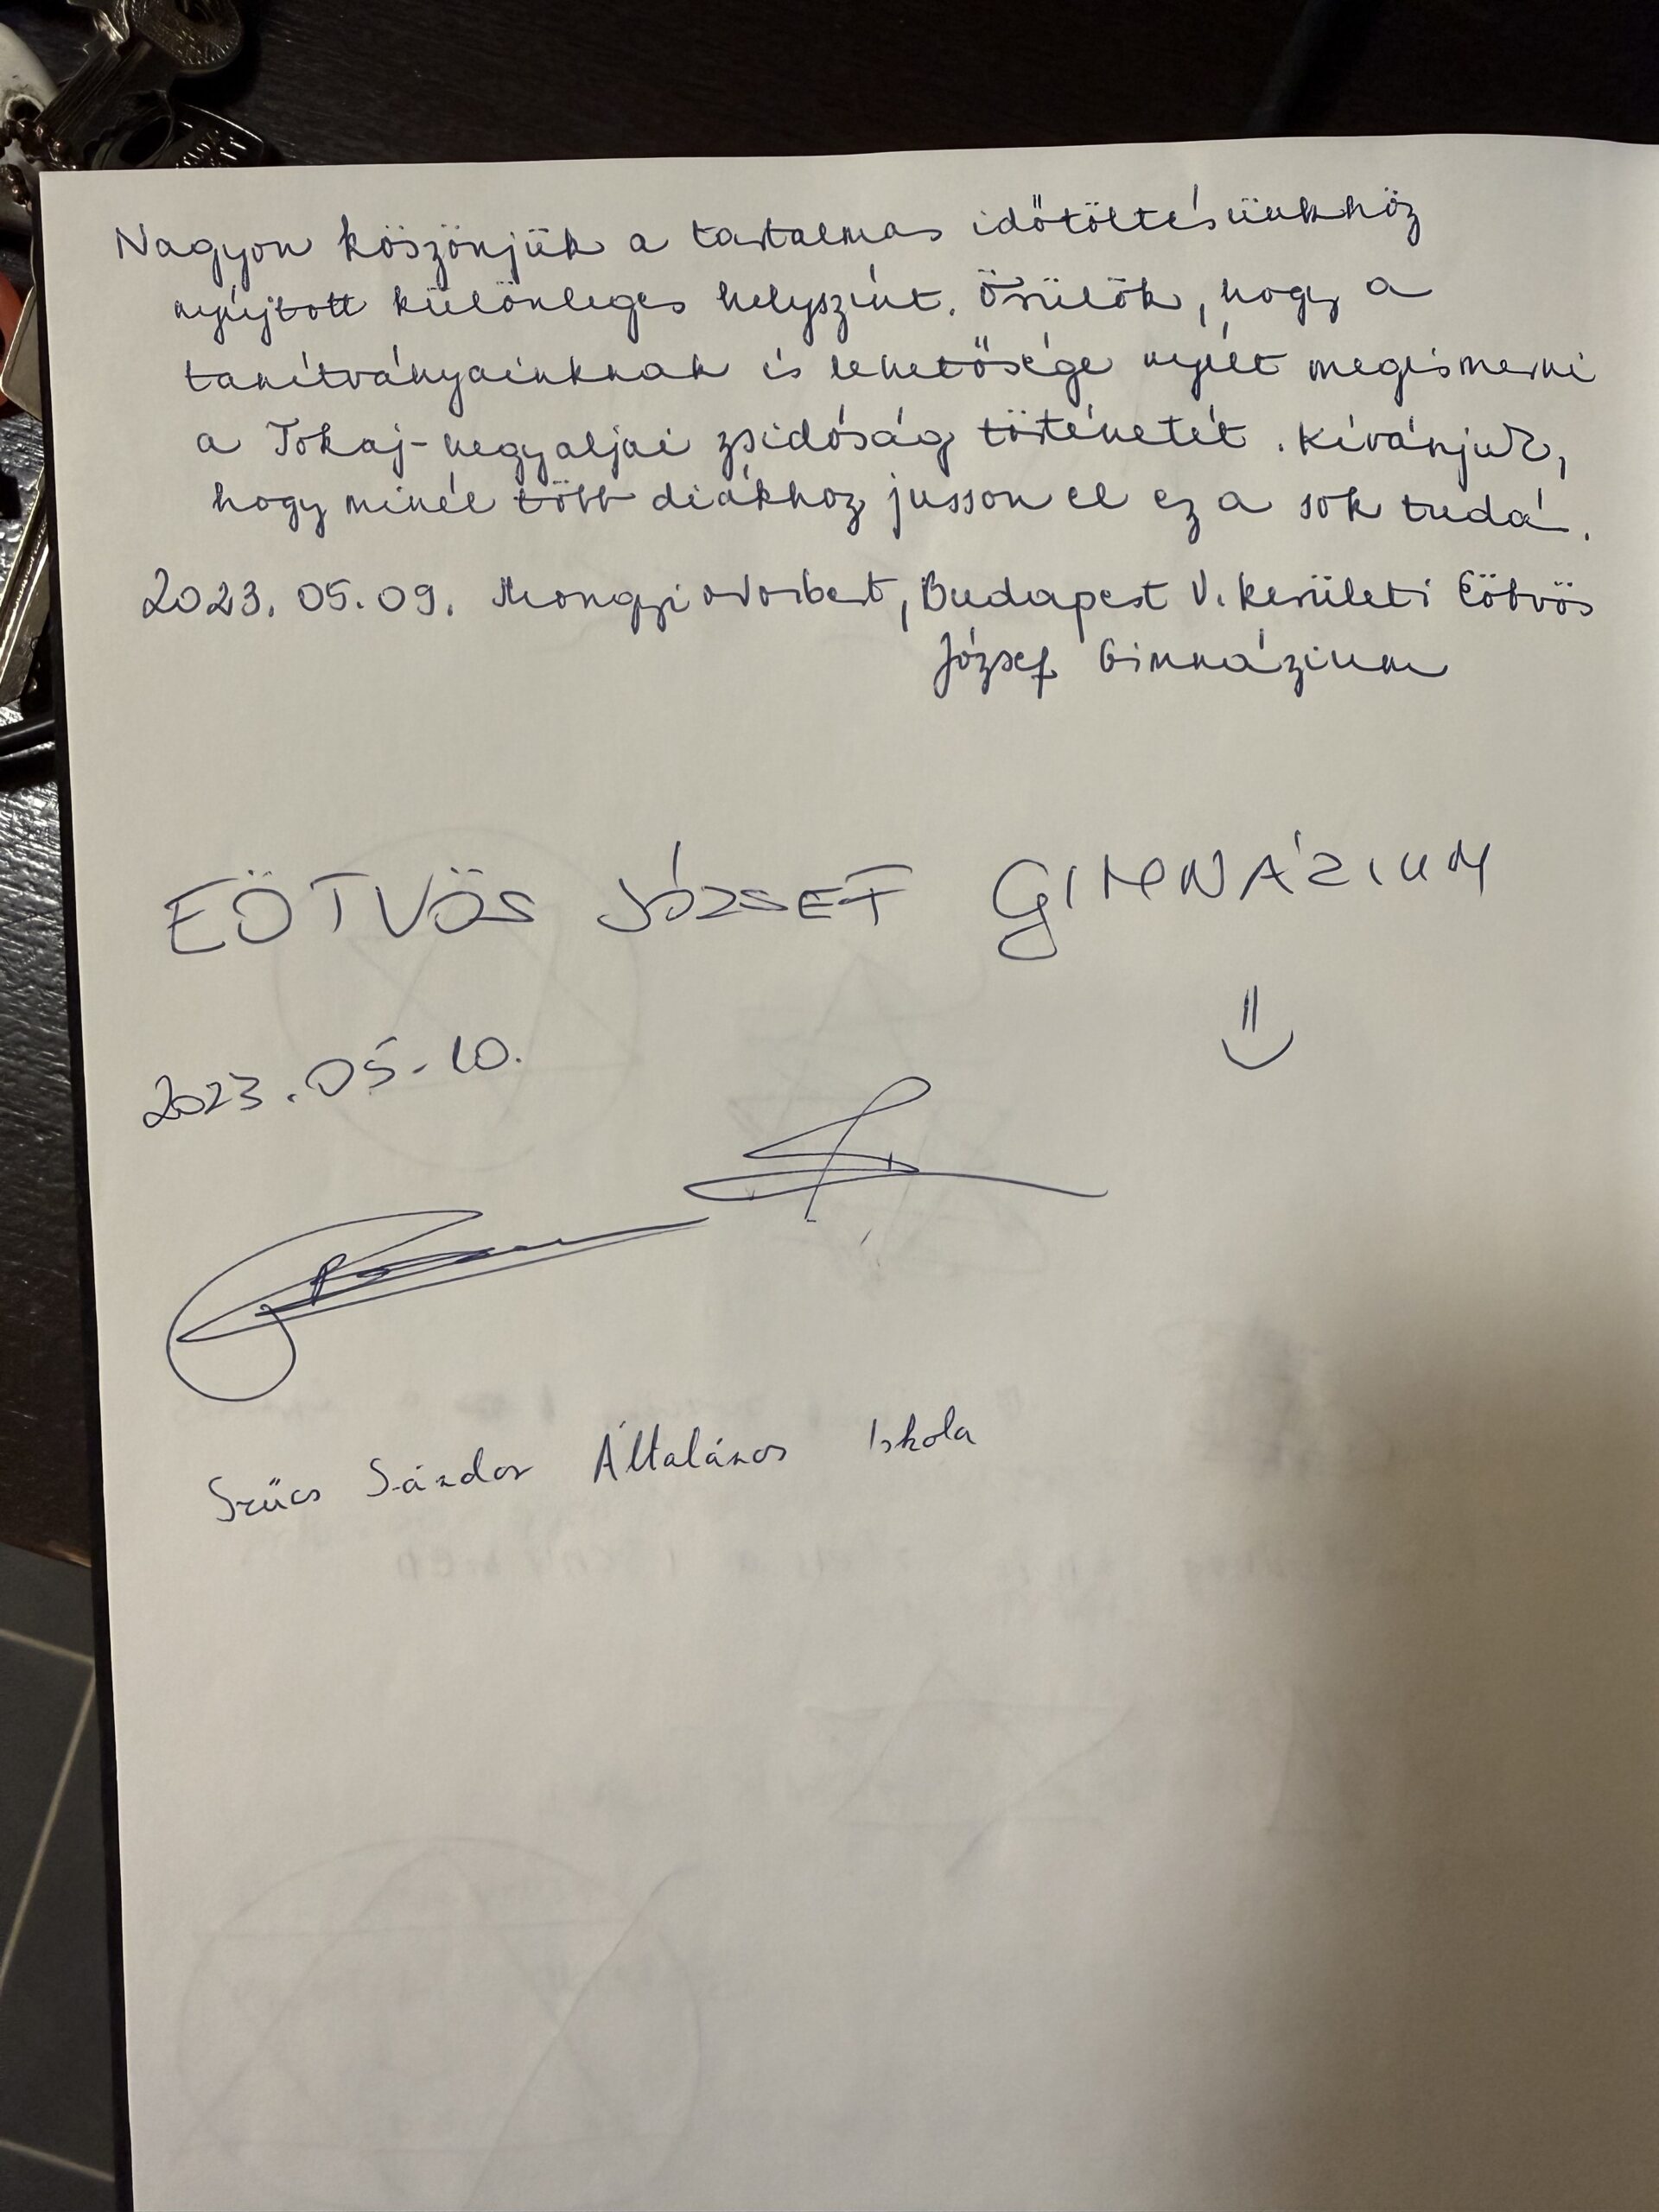 Nagyon köszönjük a tartalmas időtöltésünkhöz
nyújtott különleges helyszínt. Örülök, hogy a
tanítványainknak is lehetősége nyílt megismerni
a Tokaj-hegyaljai zsidóság történetét. Kívánjuk,
hogy minél több diákhoz jusson el ez a sok tudás.
2023. 05. 09. Norbert, Budapest V. kerületi Eötvös
József Gimnázium
EÖTVÖS JÓZSEF GIMNÁZIUM
2023. 05. 10.
Szűcs Sándor Általános Iskola